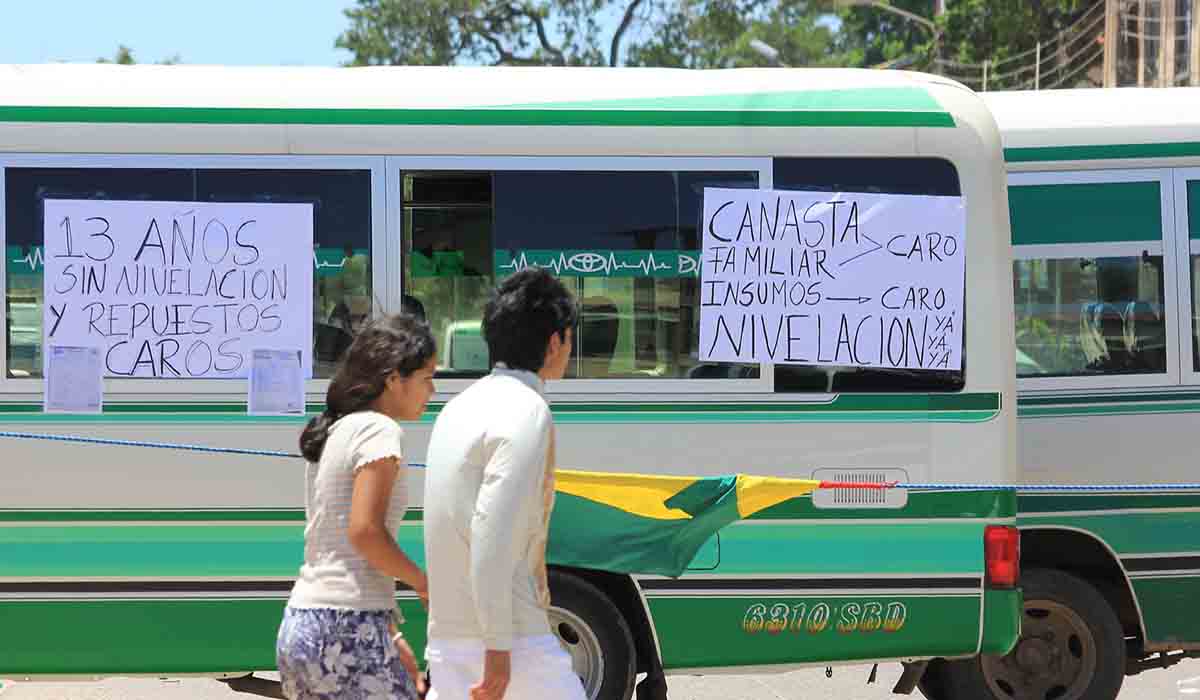 13 AÑOS
SIN NIVELACION
Y REPUESTOS
CAROS
CANASTA
FAMILIAR > CARO
INSUMOS → CARO
NIVELACION YÁ
YÁ
YÁ
6310 SBD